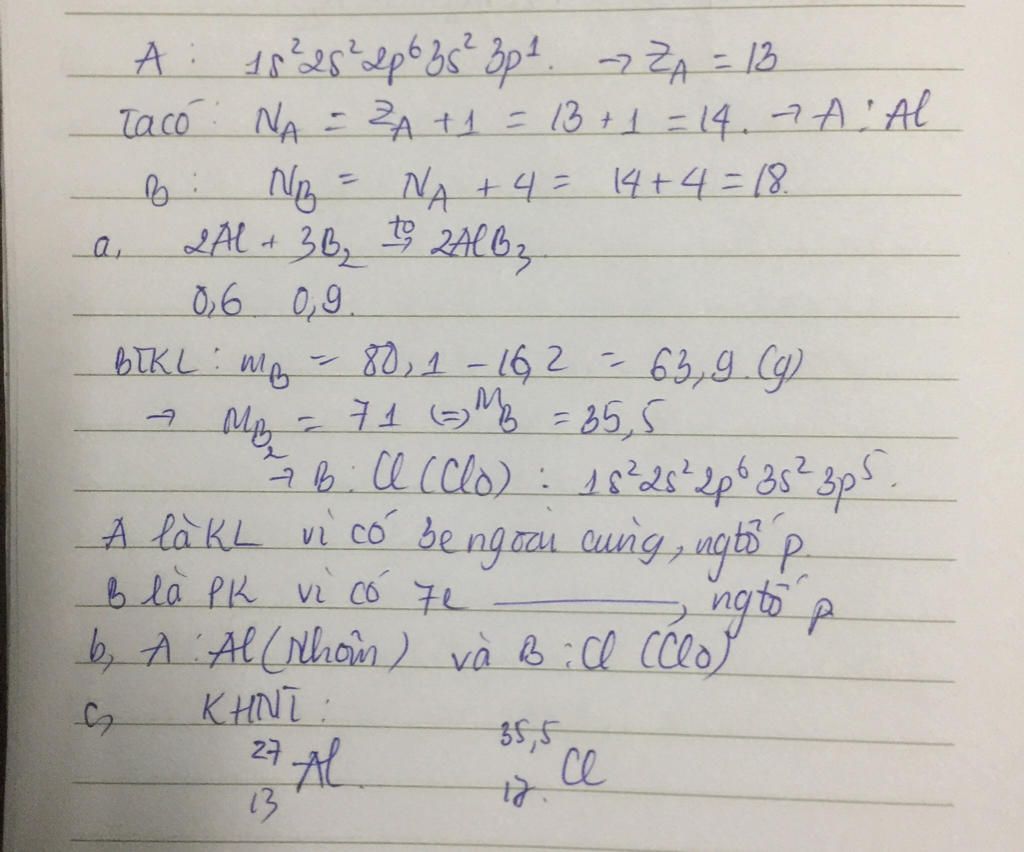 A : 1s²2s²2p⁶3s²3p¹. → Z_A = 13
Ta có: N_A = Z_A + 1 = 13 + 1 = 14. → A : Al
B : N_B = N_A + 4 = 14 + 4 = 18.
a, 2Al + 3B₂ →(t⁰) 2AlB₃
0,6 0,9.
BTKL : m_B = 80,1 - 16,2 = 63,9 (g)
→ M_B₂ = 71 (=) M_B = 35,5
→ B : Cl (Clo) : 1s²2s²2p⁶3s²3p⁵.
A là KL vì có 3e ngoài cùng, ngtố p.
B là PK vì có 7e ________, ngtố p
b, A : Al (Nhôm) và B : Cl (Clo)
c, KHNT :
²⁷₁₃Al ³⁵,⁵₁₇.Cl